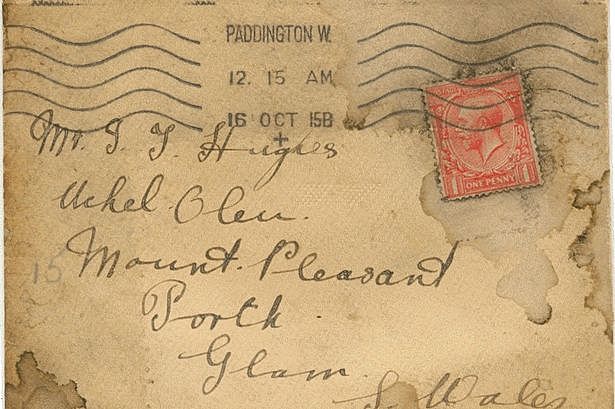 PADDINGTON W.
12. 15 AM
16 OCT 15B
ONE PENNY
Mr. J. J. Hughes
Uchel Oleu.
Mount. Pleasant
15
Porth.
Glam.
S. Wales